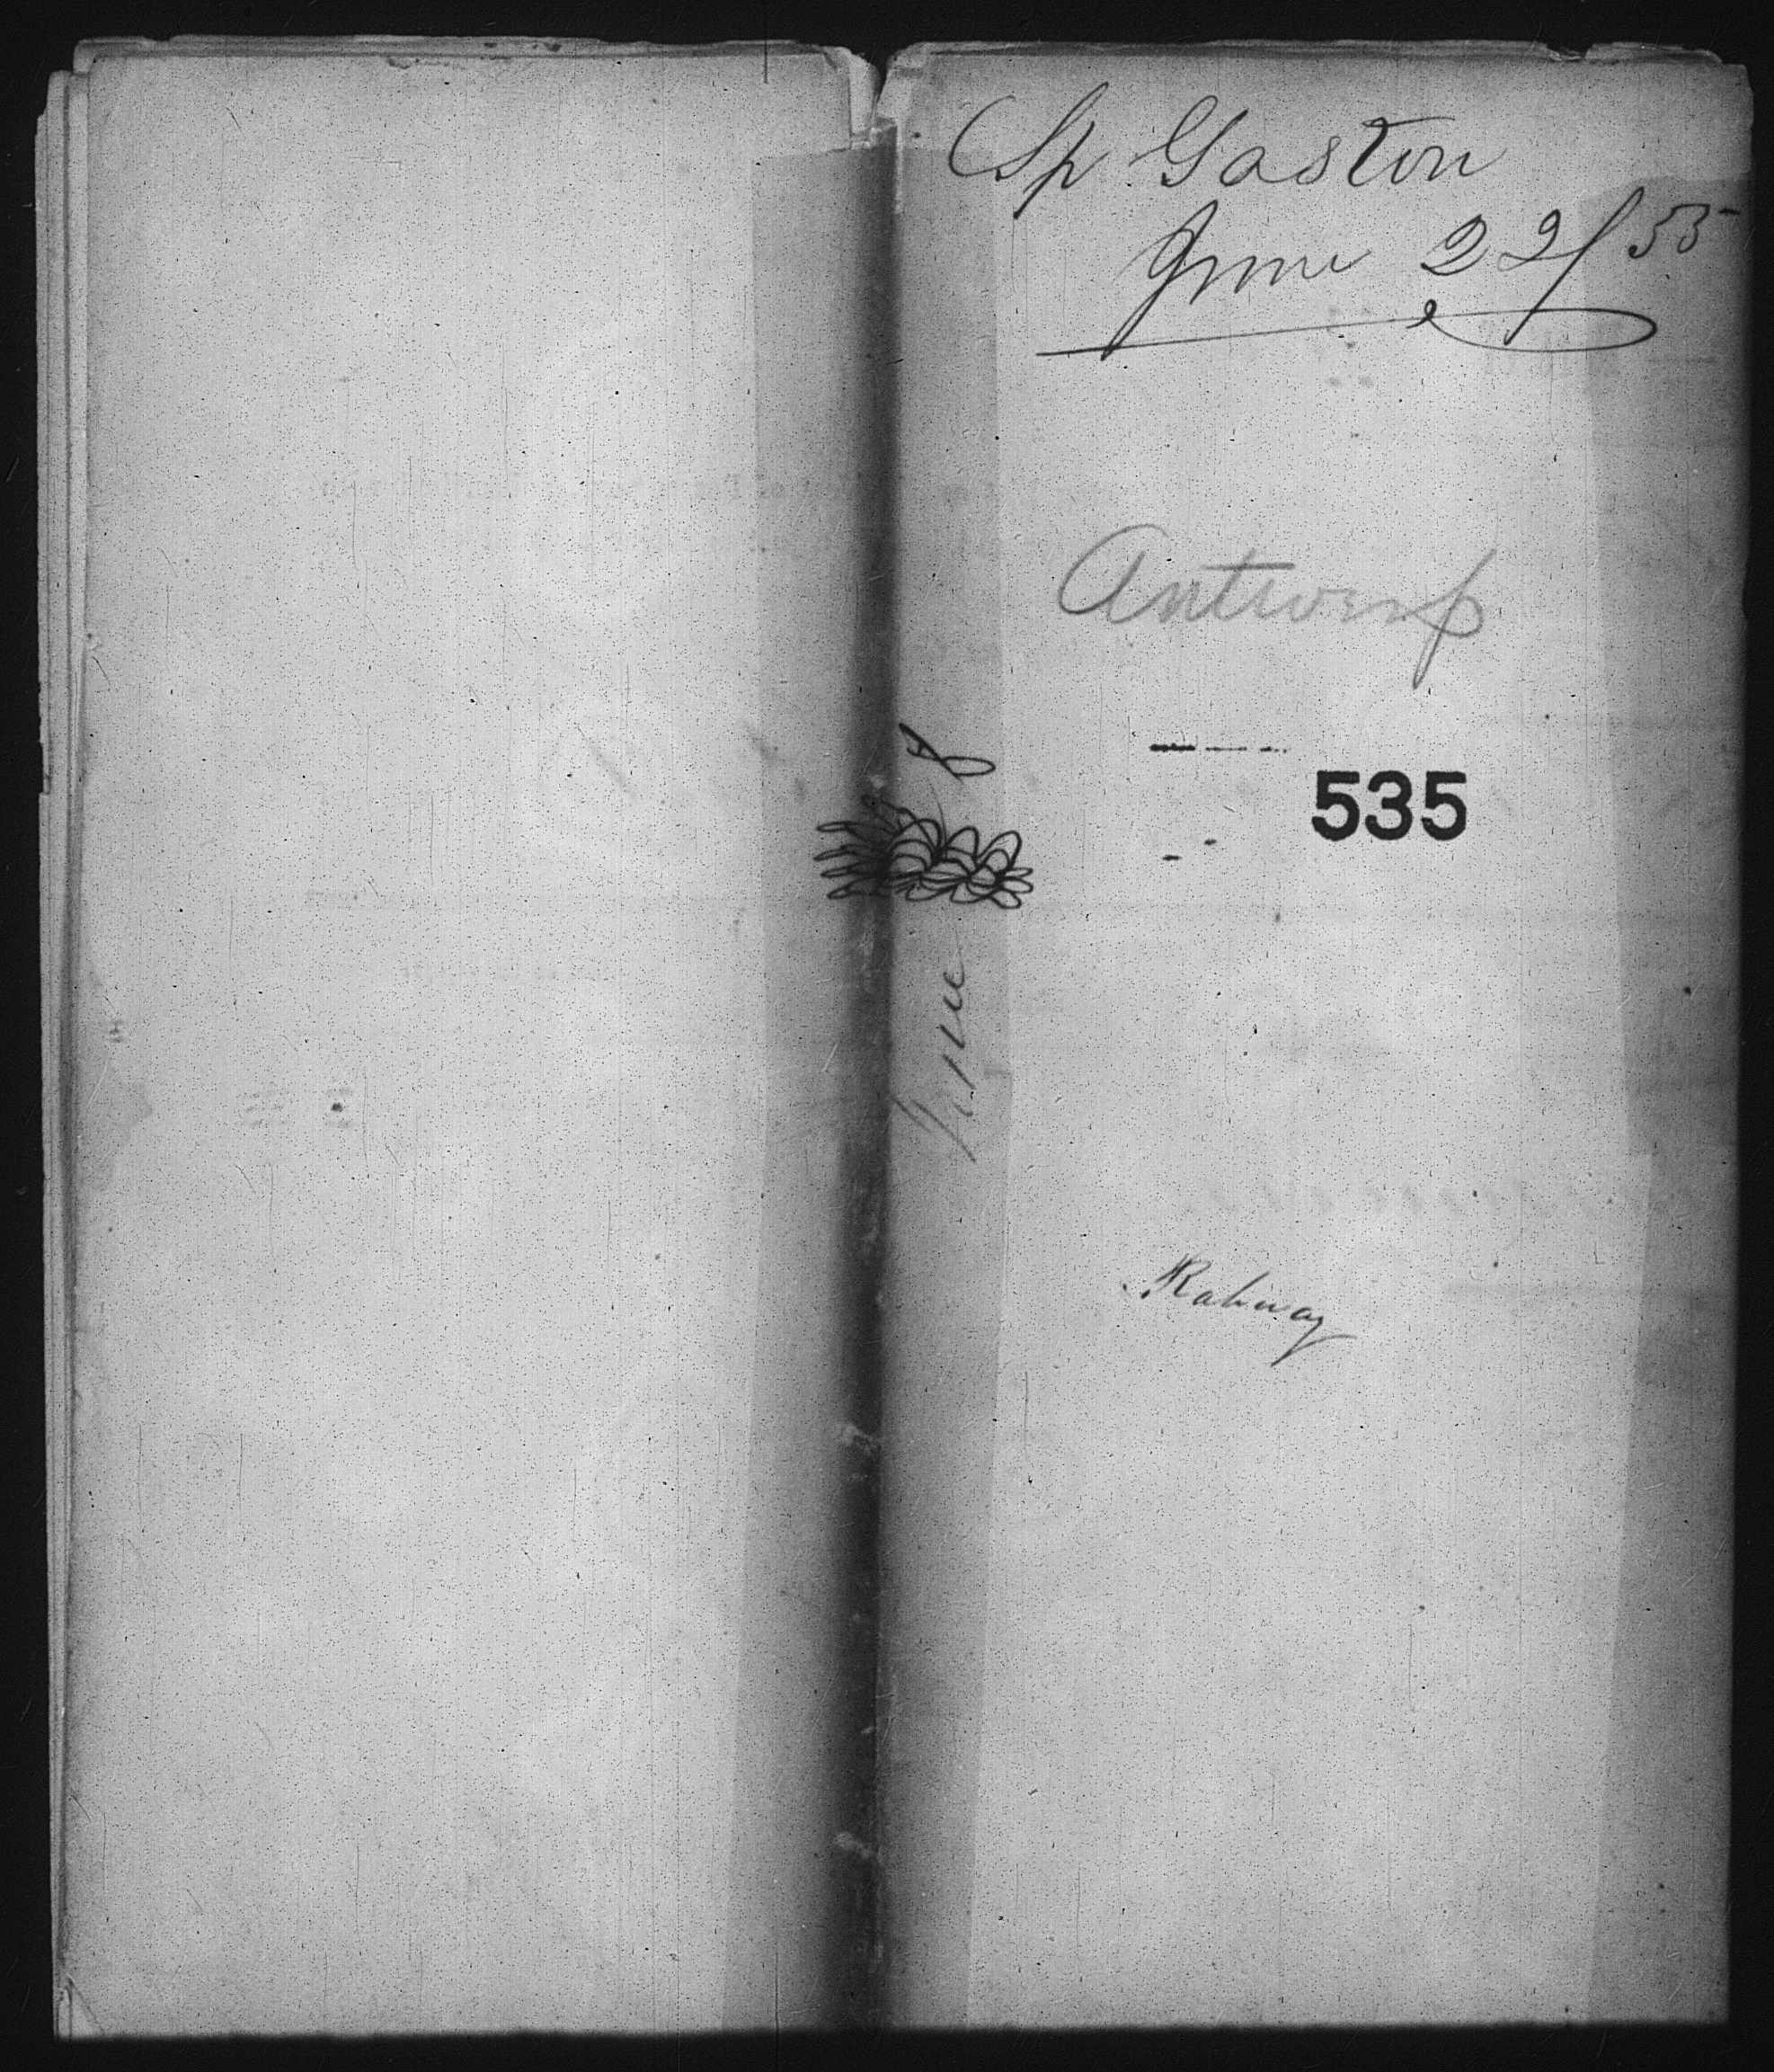 Sp Gaston
June 22/55
Antwerp
535
June
Rahway